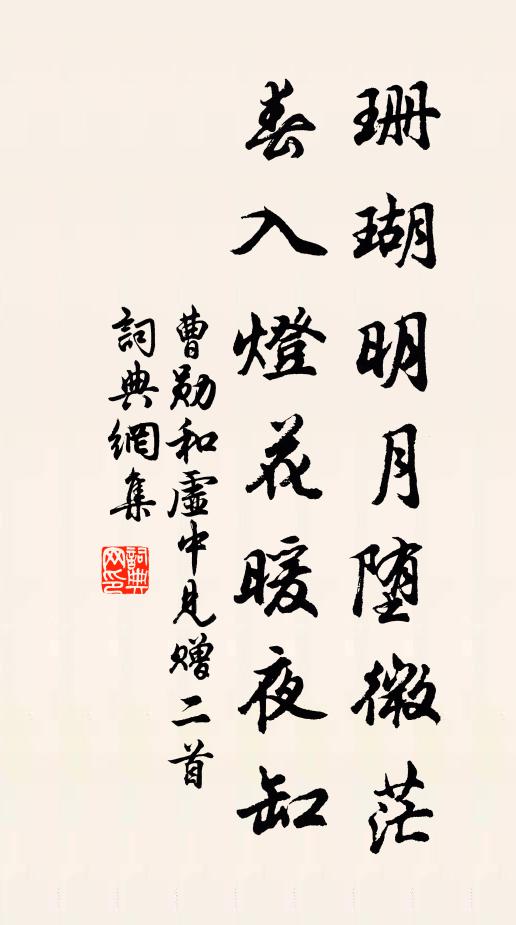 珊瑚明月堕微茫
春入燈花暖夜缸
曹勛和虛中見贈二首
詞典網集
詞典网印